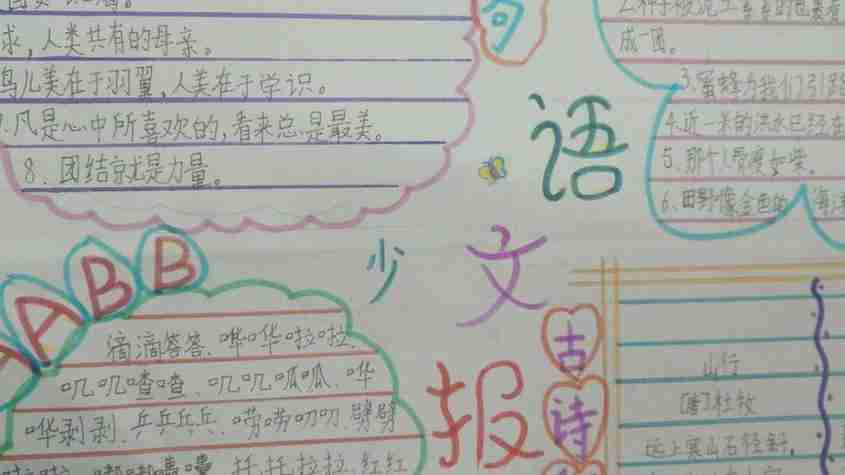 求,人类共有的母亲。
鸟儿美在于羽翼,人美在于学识。
7.凡是心中所喜欢的,看来总是最美。
8.团结就是力量。
句
成一团。
3.蜜蜂为我们引路
4.近一米的洪水已经在
5.那个人骨瘦如柴。
6.田野像金色的海洋
语
文
少
报
AABB
滴滴答答、哗哗啦啦、
叽叽喳喳、叽叽呱呱、哗
哗剥剥、乒乒乓乓、唠唠叨叨、劈劈
托托拉拉、红红
古
诗
山行
[唐]杜牧
远上寒山石径斜,